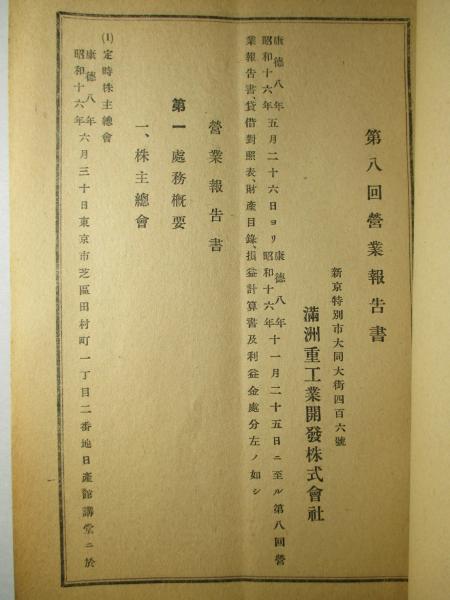 第八回營業報告書
新京特別市大同大街四百六號
滿洲重工業開發株式會社
康德八年
昭和十六年五月二十六日ヨリ康德八年
昭和十六年十一月二十五日ニ至ル第八回營
業報告書、貸借對照表、財產目錄、損益計算書及利益金處分左ノ如シ
營業報告書
第一 處務概要
一、株主總會
(1)定時株主總會
康德八年
昭和十六年六月三十日東京市芝區田村町一丁目二番地日產館講堂ニ於